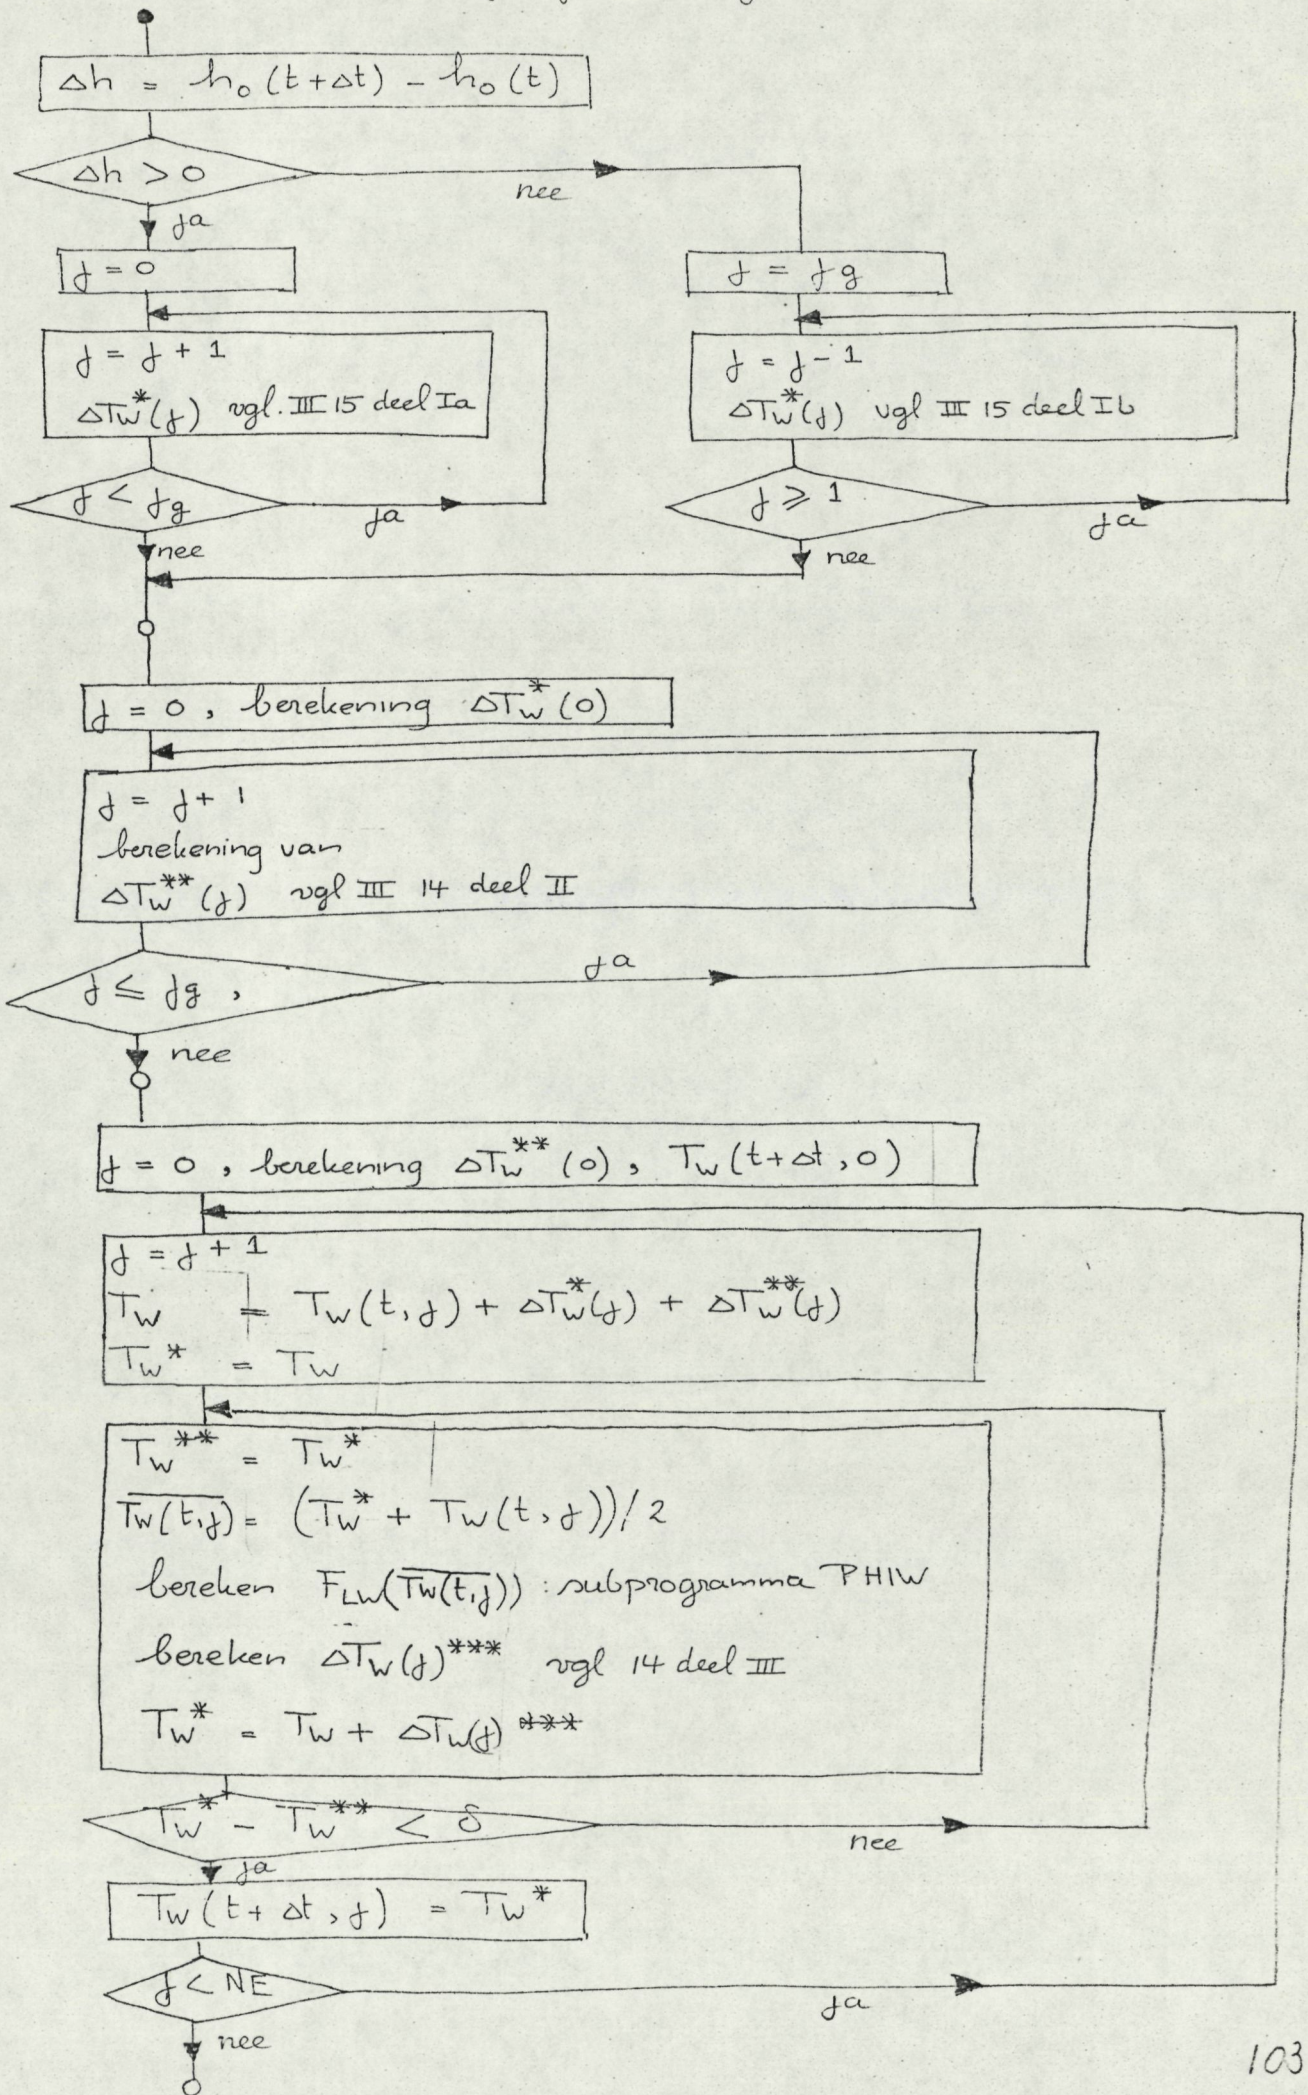 Δh = h₀ (t+Δt) - h₀ (t)
Δh > 0
nee
ja
j = 0
j = jg
j = j + 1
ΔTw*(j) vgl. III 15 deel Ia
j = j - 1
ΔTw*(j) vgl III 15 deel Ib
j < jg
ja
nee
j ≥ 1
ja
nee
j = 0, berekening ΔTw*(0)
j = j + 1
berekening van
ΔTw**(j) vgl III 14 deel II
j ≤ jg,
ja
nee
j = 0, berekening ΔTw**(0), Tw(t+Δt, 0)
j = j + 1
Tw = Tw(t, j) + ΔTw*(j) + ΔTw**(j)
Tw* = Tw
Tw** = Tw*
T̅w̅(̅t̅,̅j̅)̅ = (Tw* + Tw(t, j))/2
bereken FLW(T̅w̅(̅t̅,̅j̅)̅) : subprogramma PHIW
bereken ΔTw(j)*** vgl 14 deel III
Tw* = Tw + ΔTw(j)***
Tw* - Tw** < δ
nee
ja
Tw(t+Δt, j) = Tw*
j < NE
ja
nee
103